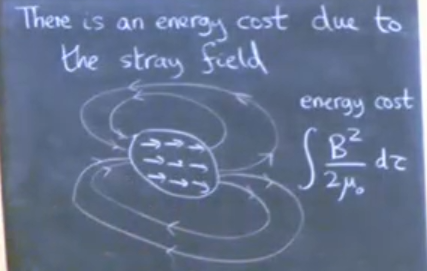 There is an energy cost due to
the stray field
energy cost
∫ B²/2μ₀ dτ